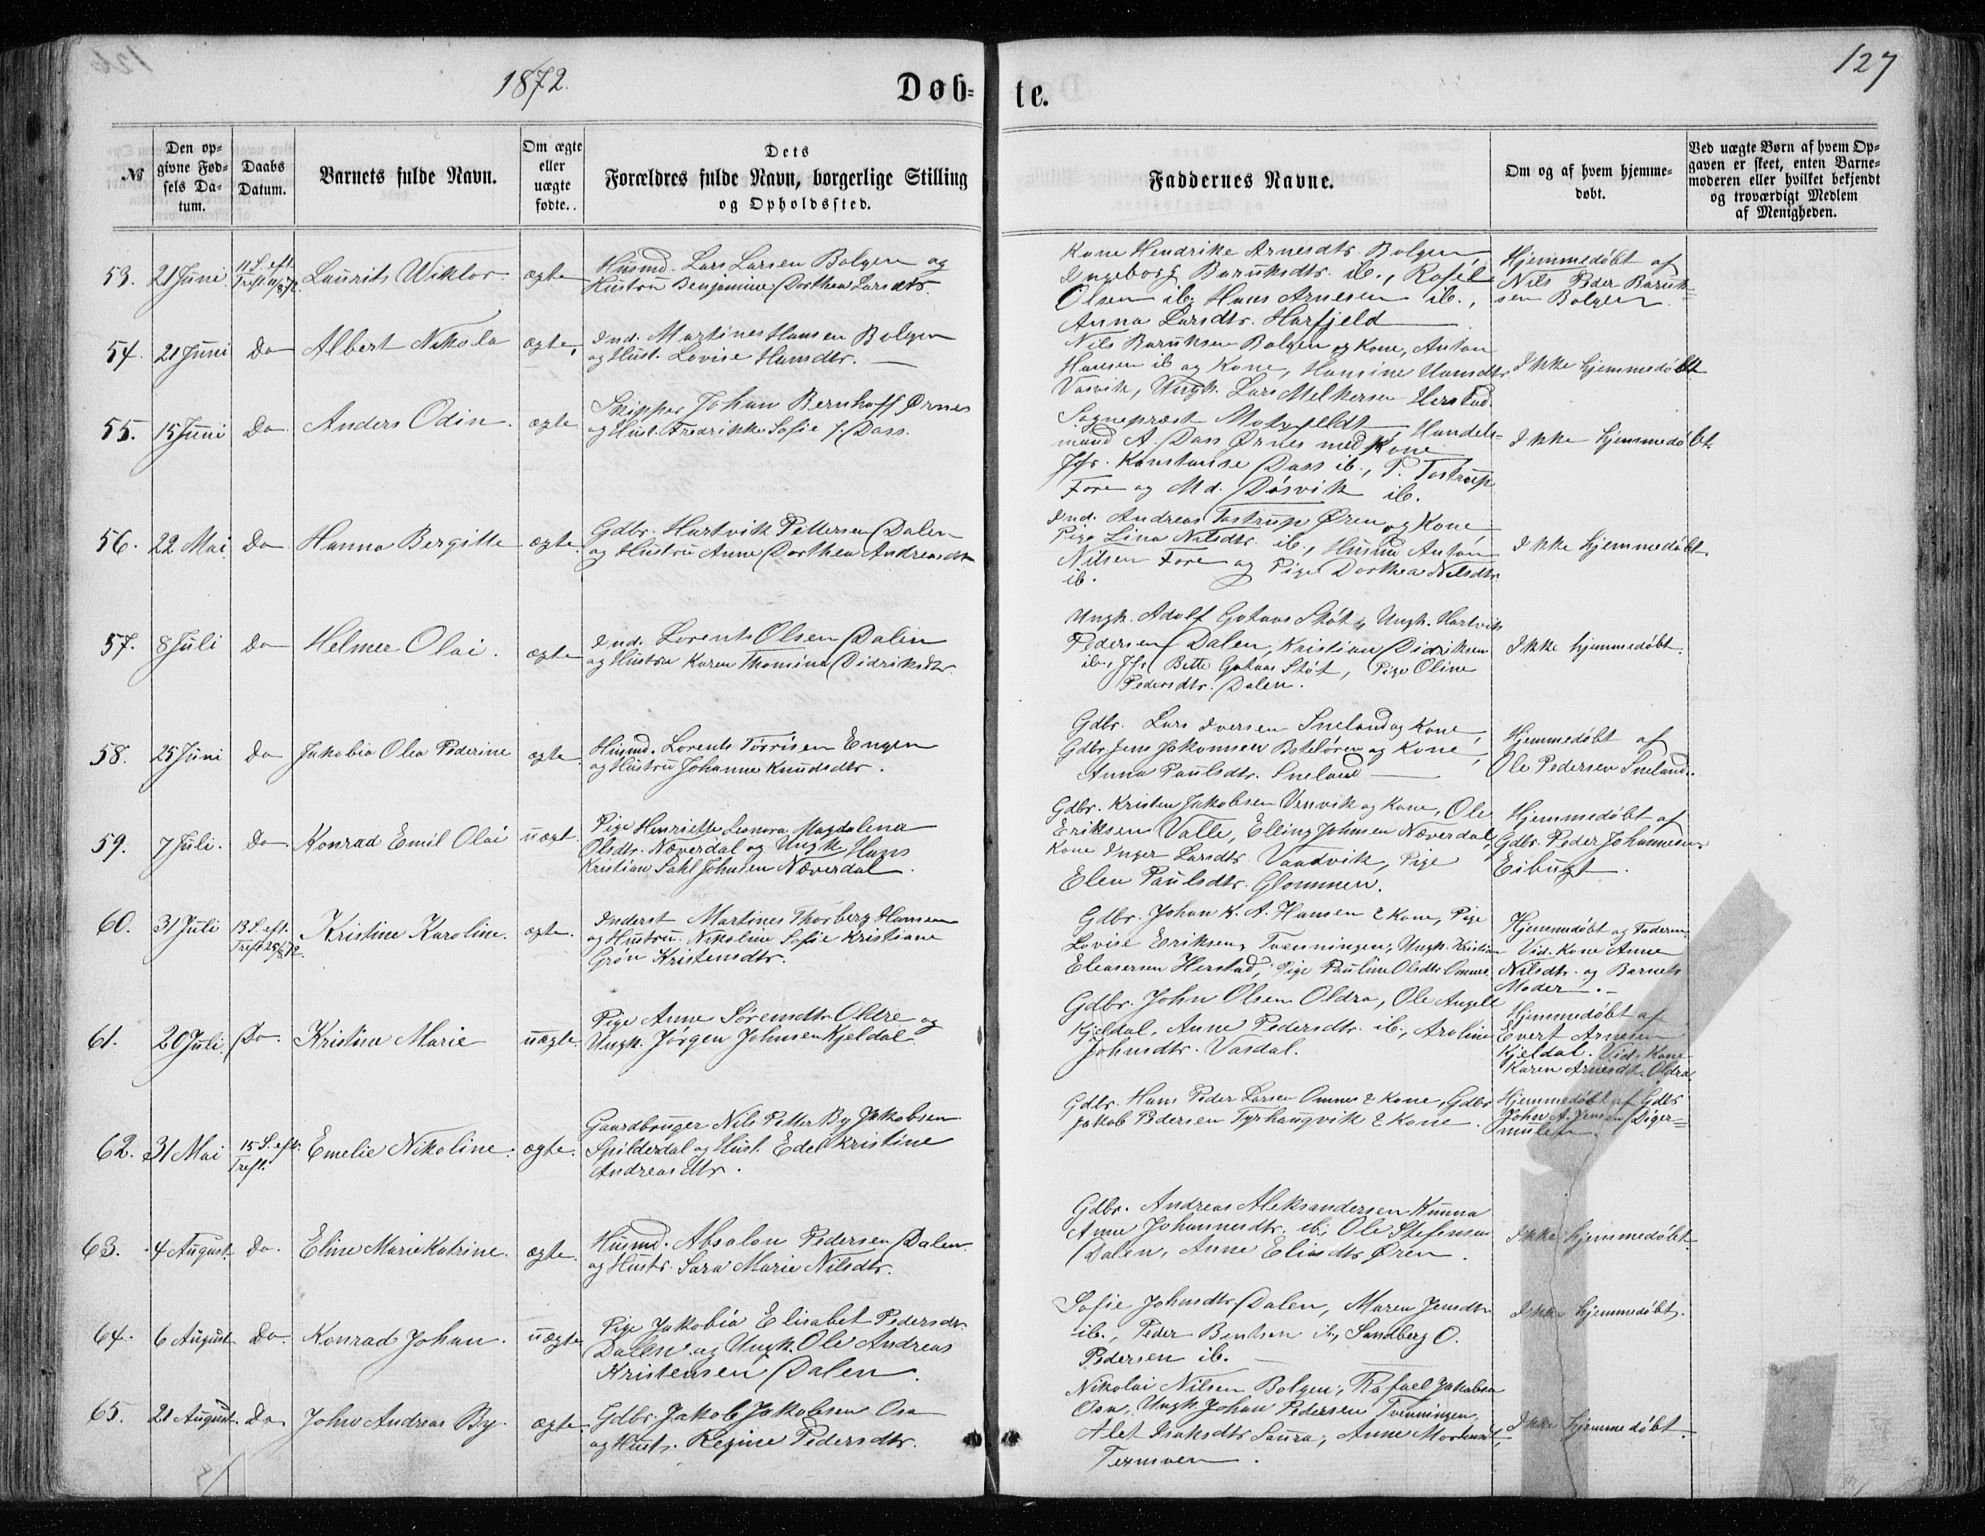 1872.
Døb-
te.
127
№
Den op-
givne Fød-
sels Da-
tum.
Daabs
Datum.
Barnets fulde Navn.
Om ægte
eller
uægte
fødte.
Dets
Forældres fulde Navn, borgerlige Stilling
og Opholdssted.
Faddernes Navne.
Om og af hvem hjemme-
døbt.
Ved uægte Børn af hvem Op-
gaven er skeet, enten Barne-
moderen eller hvilket bekjendt
og troværdigt Medlem
af Menigheden.
53. 21 Juni 11 S. eft. Laurits Wiktor ægte
Husmd. Lars Larsen Bolgen og
Hustru Benjamine Dorthea Larsdtr.
Kone Hendrike Arnesdtr. Bolgen,
Ingeborg Baruksdtr. ib., Rafel
Olsen ib., Hans Arnesen ib.,
Anna Larsdtr. Harfjeld
Hjemmedøbt af
Nils Peder Baruk-
sen Bolgen
54. 21 Juni Do Albert Nikola ægte,
Ind. Martines Hansen Bolgen
og Hust. Lovise Hansdtr.
Nils Baruksen Bolgen og Kone, Anton
Hansen ib og Kone, Hansine Hansdtr
Vasvik, Ungk. Lars Melkersen Herstad.
Ikke hjemmedøbt
55. 15 Juni Do Anders Odin. ægte
Skipper Johan Bernhoff Ørnes
og Hust. Fredrikke Sofie f. Dass.
Sognepræst Motzfeldt, Handels-
mand A. Dass Ørnes med Kone
Jfr. Konstanse Dass ib., P. Tostrup
Fore og Md. Døsvik ib.
Ikke hjemmedøbt
56. 22 Mai Do Hanna Bergitte ægte
Gdbr. Hartvik Pettersen Dalen
og Hustru Anne Dorthea Andreasdtr
Ind. Andreas Tostrup Øren og Kone
Pige Lina Nilsdtr. ib., Husmd Anton
Nilsen Fore og Pige Dorthea Nilsdtr
ib.
Ikke hjemmedøbt
57. 8 Juli Do Helmer Olai. ægte
Ind. Lorents Olsen Dalen
og Hustru Karen Thomine Didriksdtr.
Ungk. Adolf Gotaas Støt, Ungk. Hartvik
Pedersen Dalen, Kristian Didriksen
ib., Jfr. Bette Gotaas Støt, Pige Oline
Pedersdtr. Dalen.
Ikke hjemmedøbt.
58. 25 Juni Do Jakobia Olea Pederine ægte
Husmd. Lorents Torrisen Engen
og Hustru Johanne Knudsdtr.
Gdbr. Lars Iversen Sneland og Kone,
Gdbr. Jens Jakobsen Botsløren og Kone,
Anna Paulsdtr. Sneland
Hjemmedøbt af
Ole Pedersen Sneland.
59. 7 Juli. Do Konrad Emil Olai uægt.
Pige Henriette Leonora Magdalena
Olsdtr. Næverdal og Ungk. Hans
Kristian Dahl Johnsen Næverdal.
Gdbr. Kristen Jakobsen Venvik og Kone, Ole
Eriksen Valle, Elling Johnsen Næverdal,
Kone Inger Larsdtr. Vaadvik, Pige
Elen Paulsdtr. Glommen.
Hjemmedøbt af
Gdbr. Peder Johannesen
Eibugt.
60. 31 Juli 13 S. eft. Kristine Karoline. ægte.
Inderst Martines Thorberg Hansen
og Hustru Nikoline Sofie Kristiane
Grøn Kristensdtr.
Gdbr. Johan K. A. Hansen & Kone, Pige
Lovise Eriksen, Tvenningen, Ungk. Kristian
Eleasersen Herstad, Pige Pauline Olsdtr Omnes.
Hjemmedøbt og Faderen
Vid. Kone Anne
Nilsdtr. og Barnets
Moder.
61. 20 Juli. Do Kristine Marie uægte
Pige Anne Sørensdtr Oldre og
Ungk. Jørgen Johnsen Kjeldal
Gdbr. John Olsen Oldra, Ole Angell
Kjeldal, Anne Pedersdtr. ib., Aroline
Johnsdtr. Vasdal.
Hjemmedøbt af
Evert Arnesen
Kjeldal. Vid. Kone
Karen Arnesdtr. Oldra
62. 31 Mai 15 S. eft. Trefl. Emelie Nikoline. ægte.
Gaardbruger Nils Petter By Jakobsen
Spilderdal og Hust. Edel Kristine
Andreasdtr.
Gdbr. Hans Peder Larsen Omnes & Kone, Gdbr
Jakob Pedersen Tyrhaugvik & Kone.
Hjemmedøbt af Gdbr
John A. Jensen Diger-
mulen.
63. 4 August. Do. Eline Marie Katrine. ægte.
Husmd. Absalon Pedersen Dalen
og Hustr. Sara Marie Nilsdtr.
Gdbr. Andreas Aleksandersen Kunna
Anne Johannesdtr. ib., Ole Stefensen
Dalen, Anne Eliasdtr Øren.
Ikke hjemmedøbt.
64. 6 August Do. Konrad Johan. uægte
Pige Jakobia Elisabet Pedersdtr.
Dalen og Ungk. Ole Andreas
Kristensen Dalen.
Sofie Johnsdtr Dalen, Maren Jensdtr
ib., Peder Bentsen ib., Sandberg O.
Pedersen ib.
Ikke hjemmedøbt.
65. 21 August. Do John Andreas By. ægte.
Gdbr. Jakob Jakobsen Osa
og Hust. Regine Pedersdtr.
Nikolai Nilsen Bolgen, Rafael Jakobsen
Osa, Ungk. Johan Pedersen Tvenningen,
Alet Isaksdtr Saura, Anne Mortensdt,
Texmoen.
Ikke hjemmedøbt.